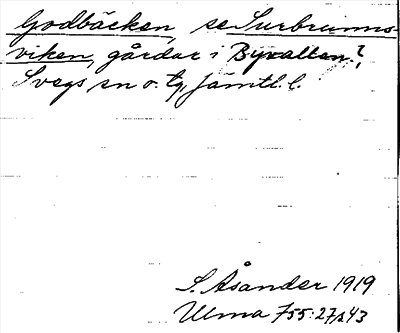 Godbäcken, se Surbrunns-
viken, gårdar i Byvallen?
Svegs sn o. tg, Jämtl. l.
S. Åsander 1919
Ulma 755:27, s. 43